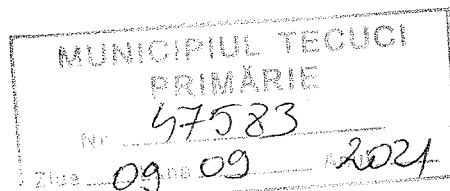 MUNICIPIUL TECUCI
PRIMĂRIE
Nr. 47583
Ziua 09 Luna 09 Anul 2021